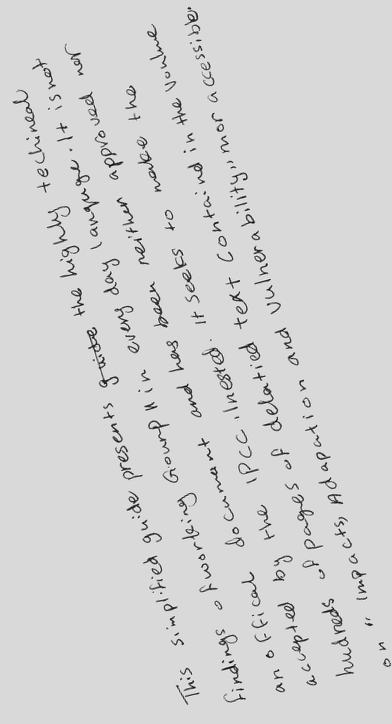 This simplified guide presents guide the highly techineal
findings of working Gourp II in every day language. It is not
an offical document and has been neither approved nor
accepted by the IPCC, Insted. It seeks to make the
hudreds of pages of delatied text contained in the volume
on " Impacts, Adapation and vulnerability,, mor accessible.